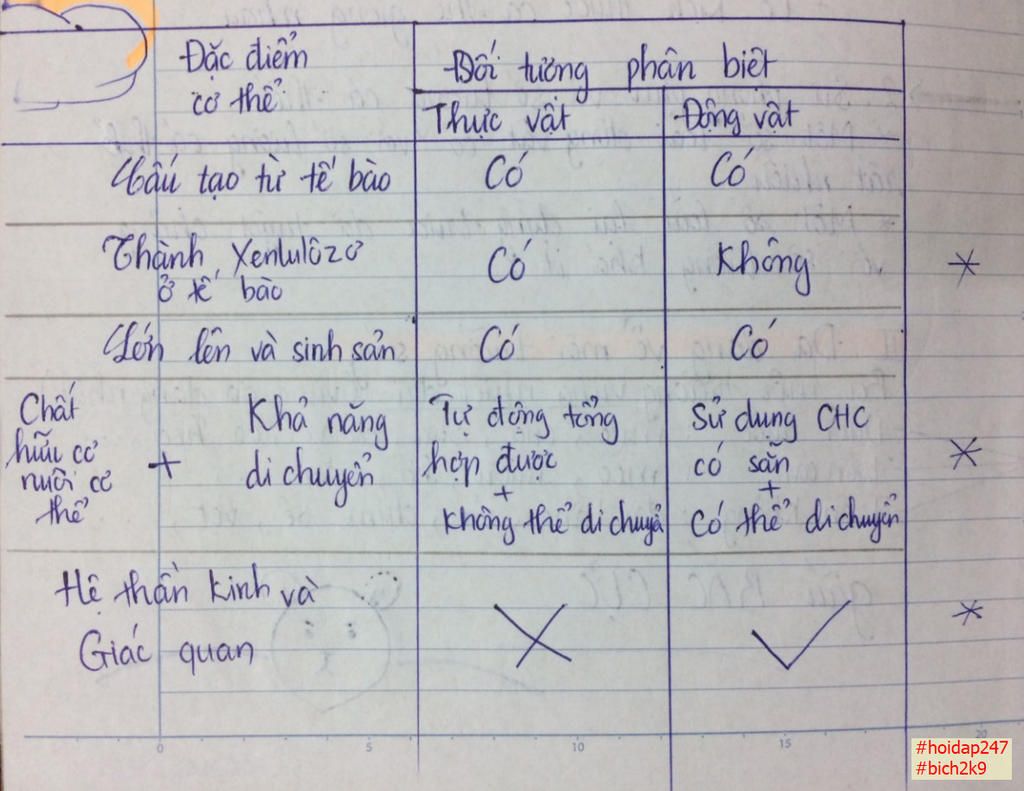 Đặc điểm
cơ thể
Đối tượng phân biệt
Thực vật
Động vật
Cấu tạo từ tế bào
Có
Có
Thành Xenlulôzơ
ở tế bào
Có
Không
Lớn lên và sinh sản
Có
Có
Chất
hữu cơ
nuôi cơ
thể
+
Khả năng
di chuyển
Tự động tổng
hợp được
+
Không thể di chuyể
Sử dụng CHC
có sẵn
+
Có thể di chuyển
Hệ thần kinh và
Giác quan
0
5
10
15
20
#hoidap247
#bich2k9